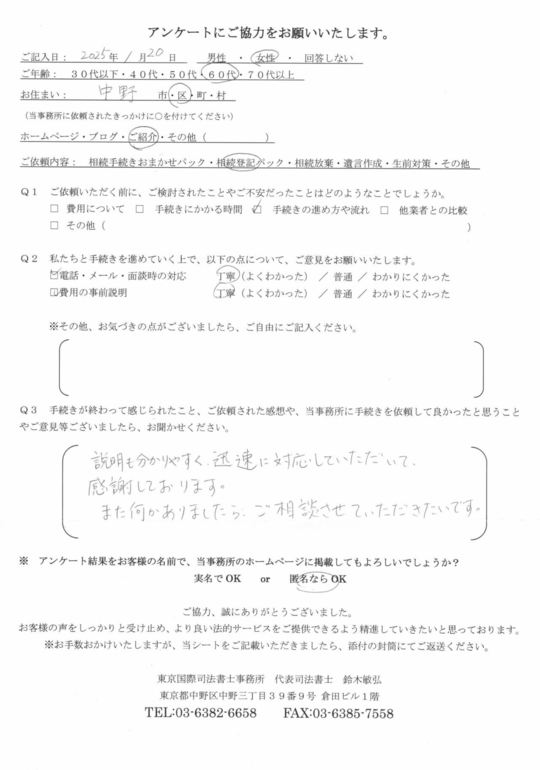 アンケートにご協力をお願いいたします。
ご記入日： 2025年 1月20日 男性 ・ 女性 ・ 回答しない
ご年齢： 30代以下・40代・50代・60代・70代以上
お住まい： 中野 市・区・町・村
（当事務所に依頼されたきっかけに○を付けてください）
ホームページ・ブログ・ご紹介・その他（ ）
ご依頼内容： 相続手続きおまかせパック・相続登記パック・相続放棄・遺言作成・生前対策・その他
Q１ ご依頼いただく前に、ご検討されたことやご不安だったことはどのようなことでしょうか。
□ 費用について □ 手続きにかかる時間 ☑ 手続きの進め方や流れ □ 他業者との比較
□ その他（ ）
Q２ 私たちと手続きを進めていく上で、以下の点について、ご意見をお願いいたします。
☑電話・メール・面談時の対応 丁寧（よくわかった） ／ 普通 ／ わかりにくかった
☑費用の事前説明 丁寧（よくわかった） ／ 普通 ／ わかりにくかった
※その他、お気づきの点がございましたら、ご自由にご記入ください。
Q３ 手続きが終わって感じられたこと、ご依頼された感想や、当事務所に手続きを依頼して良かったと思うこと
やご意見等ございましたら、お聞かせください。
説明も分かりやすく、迅速に対応していただいて、
感謝しております。
また何かありましたら、ご相談させていただきたいです。
※ アンケート結果をお客様の名前で、当事務所のホームページに掲載してもよろしいでしょうか？
実名でOK or 匿名ならOK
ご協力、誠にありがとうございました。
お客様の声をしっかりと受け止め、より良い法的サービスをご提供できるよう精進していきたいと思っております。
※お手数おかけいたしますが、当シートをご記載いただきましたら、添付の封筒にてご返送ください。
東京国際司法書士事務所 代表司法書士 鈴木敏弘
東京都中野区中野三丁目３９番９号 倉田ビル１階
TEL:03-6382-6658 FAX:03-6385-7558